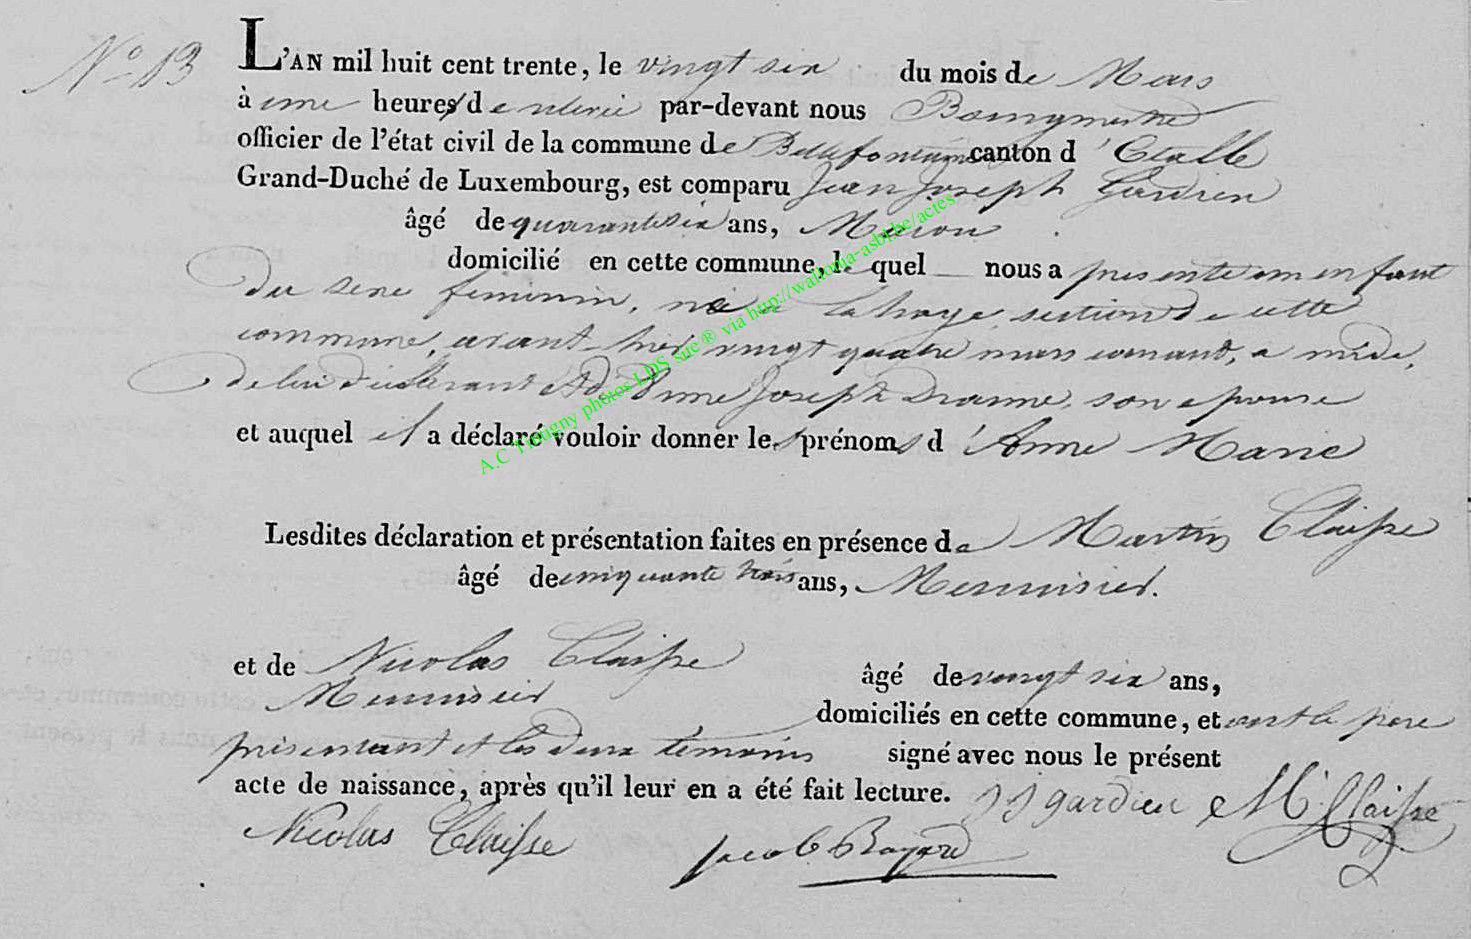 N° 13
L'AN mil huit cent trente, le vingt six du mois de Mars
à une heures de relevée par-devant nous Bourgmestre
officier de l'état civil de la commune de Bellefontaine canton d'Etalle
Grand-Duché de Luxembourg, est comparu Jean Joseph Gardien
âgé de quarante six ans, Maçon
domicilié en cette commune, le quel nous a presenté un enfant
du sexe feminin, née a Lahage, section de cette
commune, avant-hier vingt quatre mars courant, a midi,
de lui déclarant et d'Anne Joseph son epouse
et auquel il a déclaré vouloir donner les prénoms d'Anne Marie
Lesdites déclaration et présentation faites en présence de Martin Claisse
âgé de cinquante trois ans, Menuisier.
et de Nicolas Claisse âgé de vingt six ans,
Menuisier domiciliés en cette commune, et ont le pere
présentant et les deux témoins signé avec nous le présent
acte de naissance, après qu'il leur en a été fait lecture. J J gardien M. Claisse
Nicolas Claisse Jacob Bayard
A.C Tintigny photos LDS suc ® via http://wallonia-asbl.be/actes